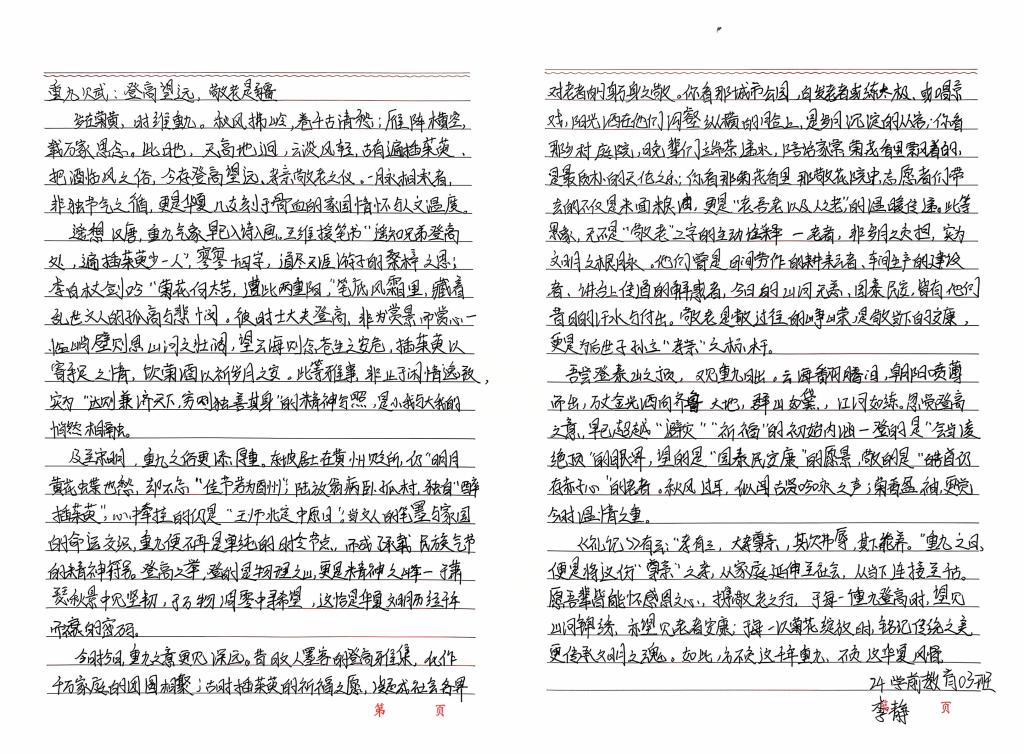 重九次武：登高望远，敬老是疆
岁在菊黄，时维重九。秋风拂山岭，卷千古清愁；雁阵横空，
载万家思念。此日也，天高地迥，云淡风轻，古有遍插茱萸、
把酒临风之俗，今存登高望远、孝亲敬老之仪。一脉相承者，
非独节气之循，更是华夏儿女刻于骨血的家国情怀与人文温度。
遥想汉唐，重九气象早已入诗入画。王维援笔书“遥知兄弟登高
处，遍插茱萸少一人”，寥寥十四字，道尽天涯游子的桑梓之思；
李白杖剑吟“菊花何太苦，遭此两重阳”，笔底风霜里，藏着
乱世文人的孤高与悲悯。彼时士大夫登高，非为赏景而赏心—
临峭壁则思山河之壮阔，望云海则念苍生之安危，插茱萸以
寄手足之情，饮菊酒以祈岁月之安。此等雅事，非止于闲情逸致，
实为“达则兼济天下，穷则独善其身”的精神写照，是小我与大我的
悄然相融。
及至宋明，重九之俗更添厚重。东坡居士在黄州贬所，作“明月
黄花蝶也愁，却不忘“佳节若为酬”；陆放翁病卧孤村，独自“醉
插茱萸”，心中牵挂的仍是“王师北定中原日”。当文人的笔墨与家国
的命运交织，重九便不再是单纯的时令节点，而成了承载民族气节
的精神符号。登高之举，登的是物理之山，更是精神之峰—于萧
瑟秋景中见坚韧，于万物凋零中寻希望，这恰是华夏文明历经千年
而不衰的密码。
今时今日，重九之意更见深远。昔日文人墨客的登高雅集，化作
千万家庭的团圆相聚；古时插茱萸的祈福之愿，凝成社会各界
对老者的躬身之敬。你看那城市公园，白发老者或练太极、或唱京
戏，阳光洒在他们沟壑纵横的脸上，是岁月沉淀的从容；你看
那乡村庭院，晚辈们端茶递水，陪话家常，菊花香里飘着的，
是最质朴的天伦之乐；你看那菊花香里那敬老院中志愿者们带
去的不仅是米面粮油，更是“老吾老以及人之老”的温暖传递。此等
景象，不正是“敬老”二字的生动诠释—老者，非岁月之负担，实为
文明之根脉。他们曾是田间劳作的耕耘者、车间生产的建设
者、讲台上传道的解惑者，今日的山河无恙、国泰民安，皆有他们
昔日的汗水与付出。敬老是敬过往的峥嵘，是敬当下的安康，
更是为后世子孙立“孝亲”之标杆。
吾尝登泰山之顶，观重九日出。云海翻腾间，朝阳喷薄
而出，万丈金光洒向齐鲁大地，群山如黛，江河如练。忽觉登高
之意，早已超越“避灾”“祈福”的初始内涵—登的是“会当凌
绝顶”的眼界，望的是“国泰民安康”的愿景，敬的是“皓首仍
存赤子心”的老者。秋风过耳，似闻古贤吟咏之声；菊香盈袖，更觉
今时温情之重。
《礼记》有云：“孝有三，大孝尊亲，其次弗辱，其下能养。”重九之日，
便是将这份“尊亲”之孝，从家庭延伸至社会，从当下连接至古。
愿吾辈皆能怀感恩之心，持敬老之行，于每一重九登高时，望见
山河锦绣，亦望见老者安康；于每一次菊花绽放时，铭记传统之美，
更传承文明之魂。如此，方不负这千年重九，不负这华夏风骨。
24学前教育03班
李静
第 页
第 页